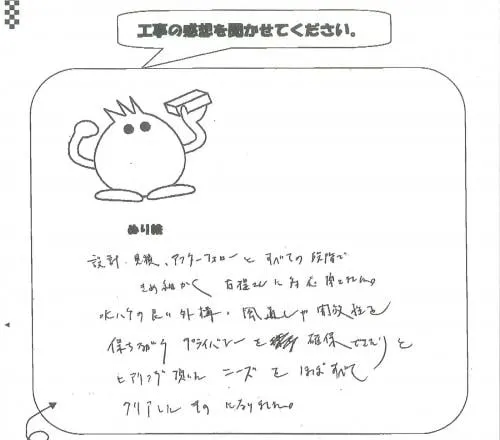 工事の感想を聞かせてください。
ぬり絵
設計、見積、アフターフォローとすべての段階で
きめ細かく 対応
水ハケの良い外構、風通しや開放性を
保ちながら プライバシーを 確保できたりと
ヒアリング頂いた ニーズを ほぼすべて
クリアした ものになりました。